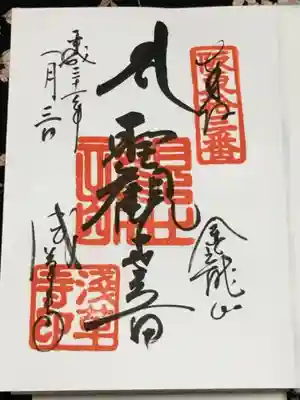 奉拝
坂東拾三番
金龍山
聖観世音
平成三十一年
一月三日
浅草寺
淺草寺印